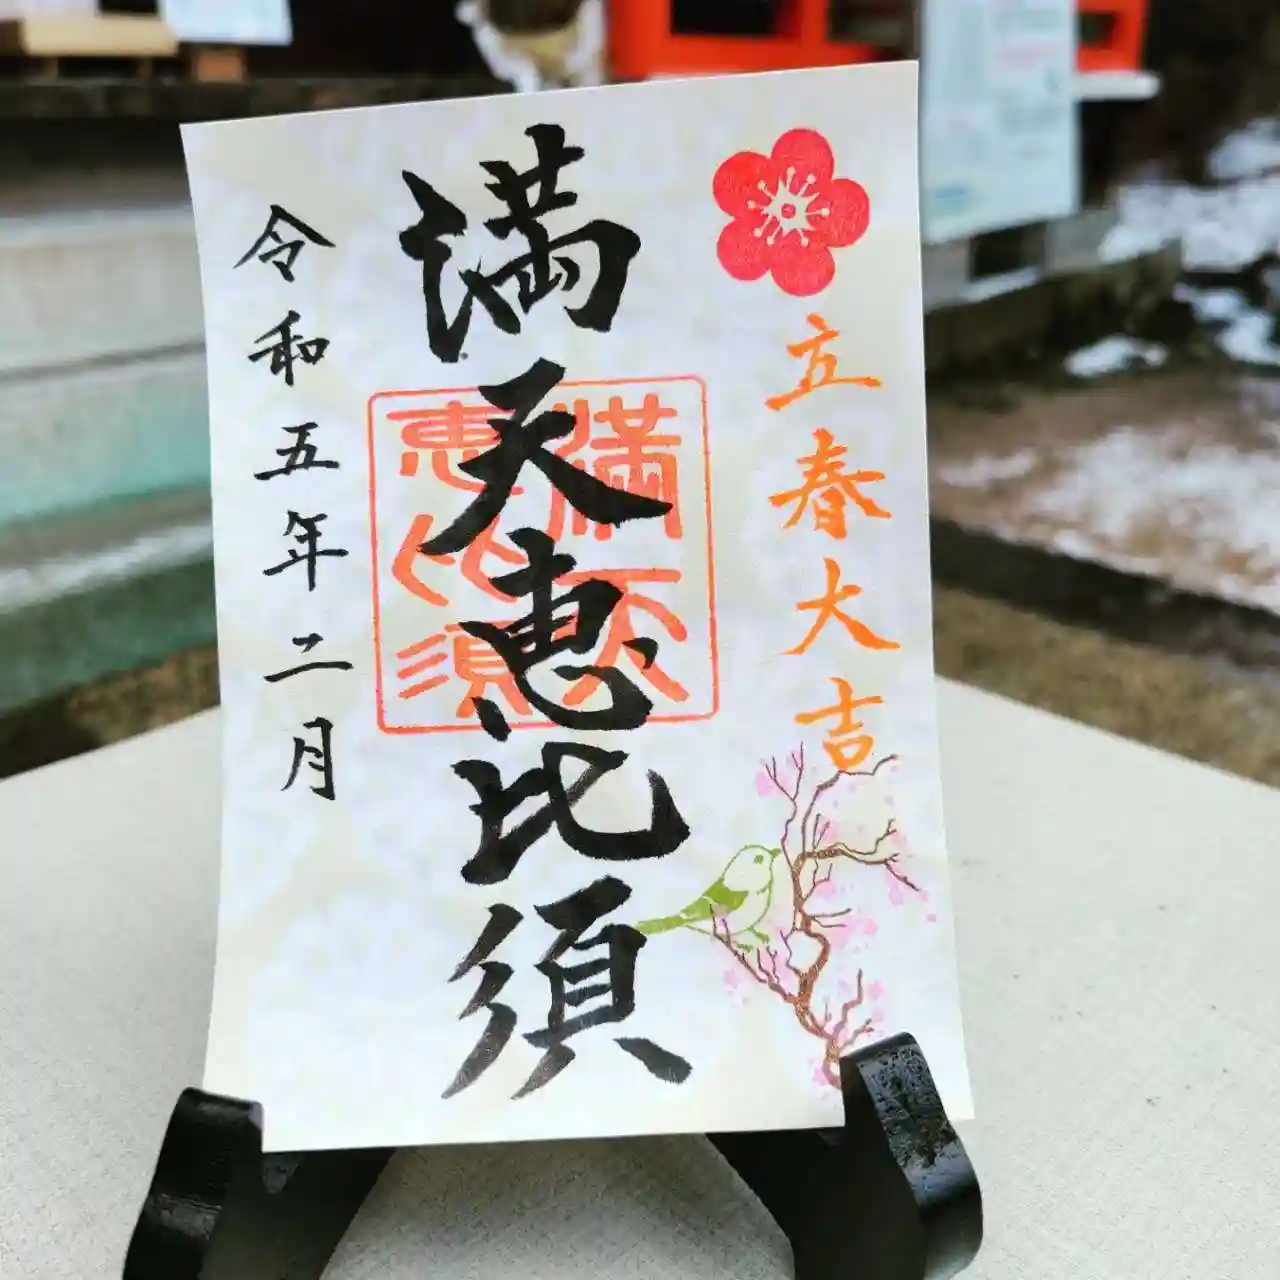 立春大吉
満天恵比須
満天
恵比須
令和五年二月